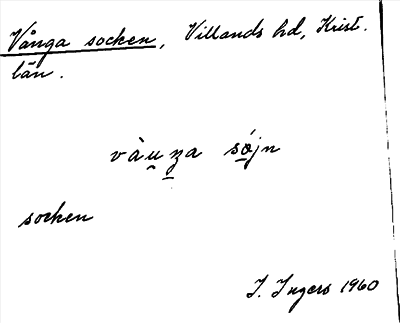 Vånga socken, Villands hd, Krist.
län.
vàu̯ꭢa sǿjn
socken
I. Ingers 1960